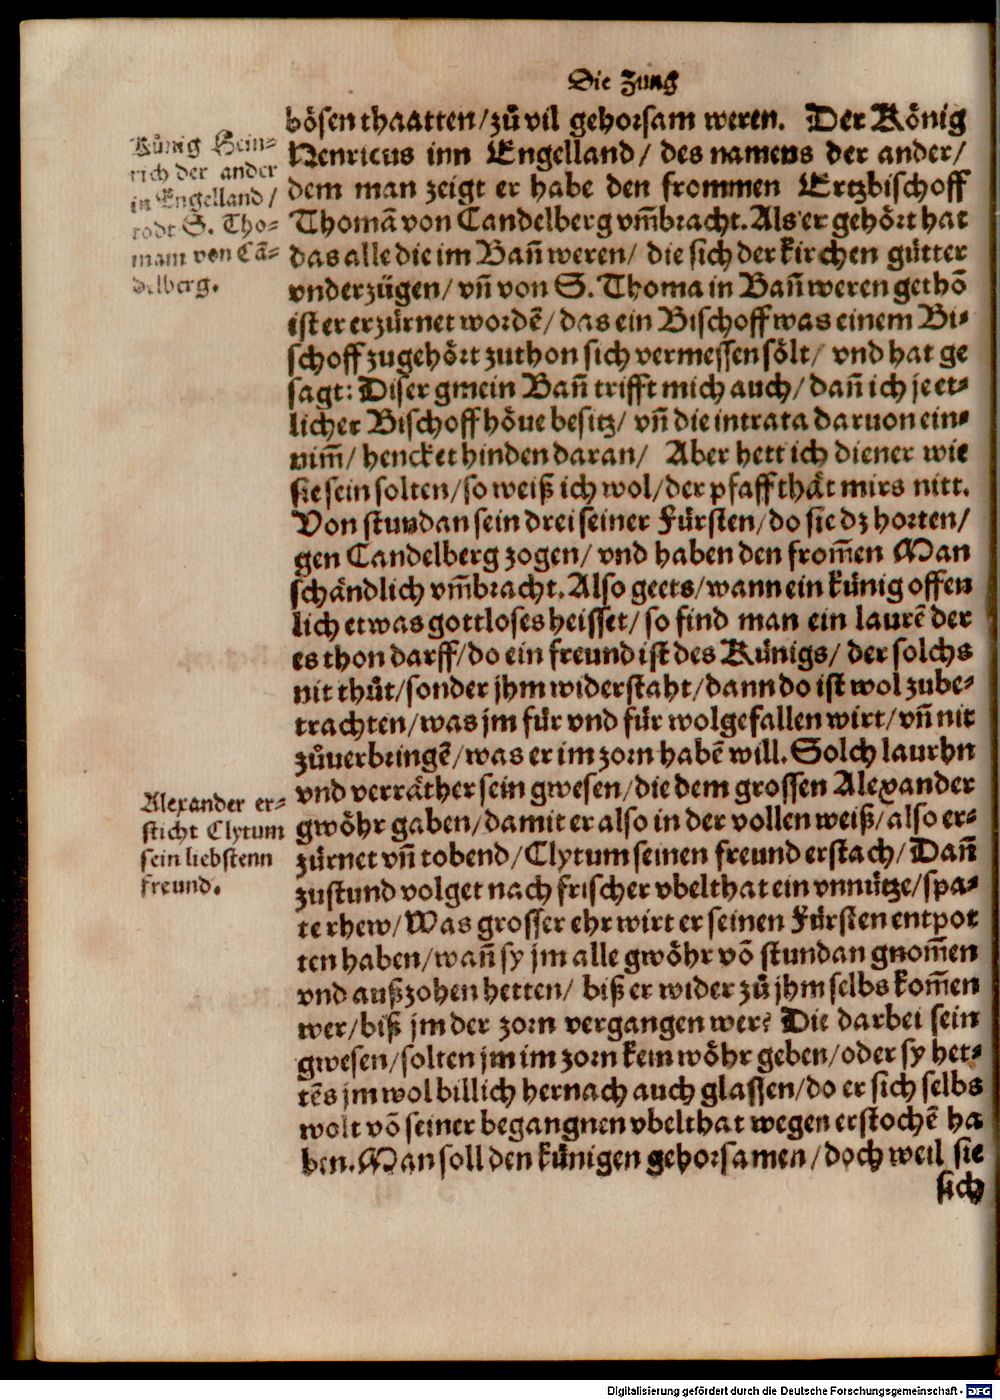 Die Zung
bösen thaatten/ zů vil gehorsam weren. Der König
Henricus inn Engelland/ des namens der ander/
dem man zeigt er habe den frommen Ertzbischoff
Thomā von Candelberg vm̄bracht. Als er gehört hat
das alle die im Bañ weren/ die sich der kirchen gütter
vnderzügen/ vñ von S. Thoma in Bañ weren gethō
ist er erzürnet wordē/ das ein Bischoff was einem Bi-
schoff zugehört zuthon sich vermessen sölt/ vnd hat ge
sagt: Diser gmein Bañ trifft mich auch/ dañ ich je et-
licher Bischoff höue besitz/ vñ die intrata daruon ein-
nim̄/ hencket hinden daran/ Aber hett ich diener wie
sie sein solten/ so weiß ich wol/ der pfaff thät mirs nitt.
Von stundan sein drei seiner Fürsten/ do sie dz horten/
gen Candelberg zogen/ vnd haben den from̄en Man
schändlich vm̄bracht. Also geets/ wann ein künig offen
lich etwas gottloses heisset/ so find man ein laurē der
es thon darff/ do ein freund ist des Künigs/ der solchs
nit thůt/ sonder jhm widerstaht/ dann do ist wol zube-
trachten/ was jm für vnd für wolgefallen wirt/ vñ nit
zůuerbringē/ was er im zorn habē will. Solch laurhn
vnd verräther sein gwesen/ die dem grossen Alexander
gwöhr gaben/ damit er also in der vollen weiß/ also er-
zürnet vñ tobend/ Clytum seinen freund erstach/ Dañ
zustund volget nach frischer vbelthat ein vnnütze/ spa-
te rhew/ Was grosser ehr wirt er seinen Fürsten entpot
ten haben/ wañ sy jm alle gwöhr vō stundan gnom̄en
vnd außzohen hetten/ biß er wider zů jhm selbs kom̄en
wer/ biß jm der zorn vergangen wer? Die darbei sein
gwesen/ solten jm im zorn kein wöhr geben/ oder sy het-
tēs jm wol billich hernach auch glassen/ do er sich selbs
wolt vō seiner begangnen vbelthat wegen erstochē ha
ben. Man soll den künigen gehorsamen/ doch weil sie
sich
Künig Hein-
rich der ander
in Engelland/
todt S. Tho-
mam von Cā-
delberg.
Alexander er-
sticht Clytum
sein liebstenn
freund.
Digitalisierung gefördert durch die Deutsche Forschungsgemeinschaft - DFG